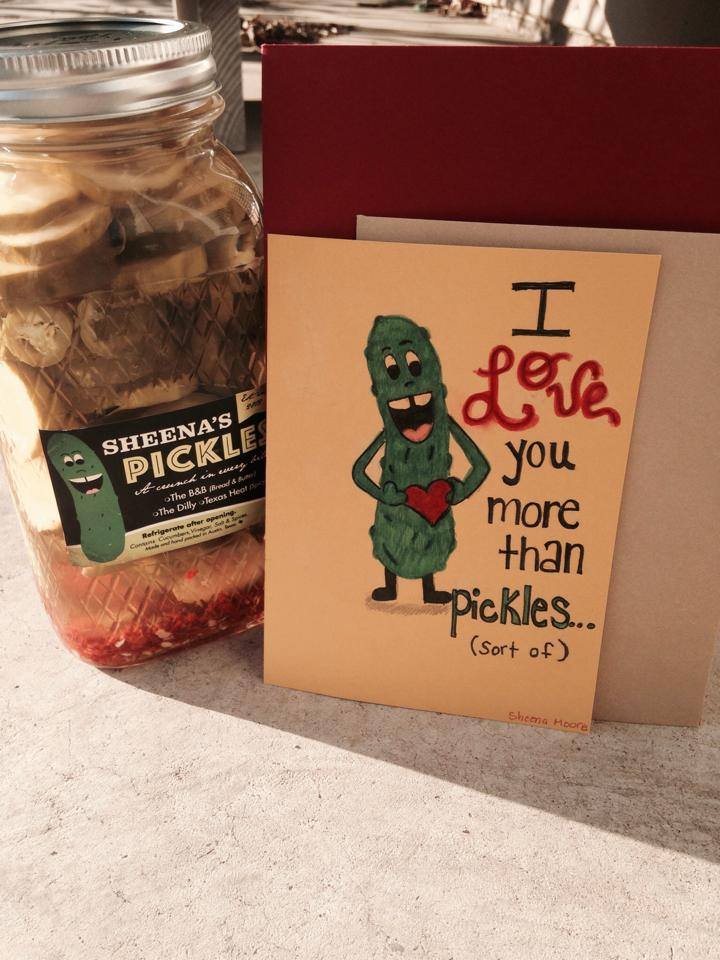 SHEENA'S
PICKLES
A crunch in every
The B&B (Bread & Butter)
The Dilly Texas Heat
Refrigerate after opening.
Contains: Cucumbers, Vinegar, Salt & Spices.
Made and hand packed in Austin, Texas.
I
Love
you
more
than
pickles...
(sort of)
Sheena Moore